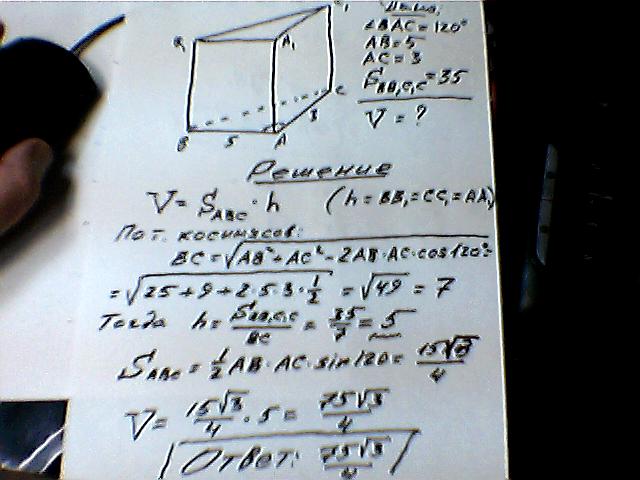 Дано:
∠BAC=120°
AB=5
AC=3
S_BB₁C₁C=35
V=?
B₁ A₁ C₁
B 5 A 3 C
Решение
V=S_ABC·h (h=BB₁=CC₁=AA₁)
По т. косинусов:
BC=√AB²+AC²-2AB·AC·cos120°=
=√25+9+2·5·3·1/2 = √49 = 7
Тогда h=S_BB₁C₁C/BC = 35/7 = 5
S_ABC=1/2 AB·AC·sin120=15√3/4
V=15√3/4·5=75√3/4
Ответ: 75√3/4